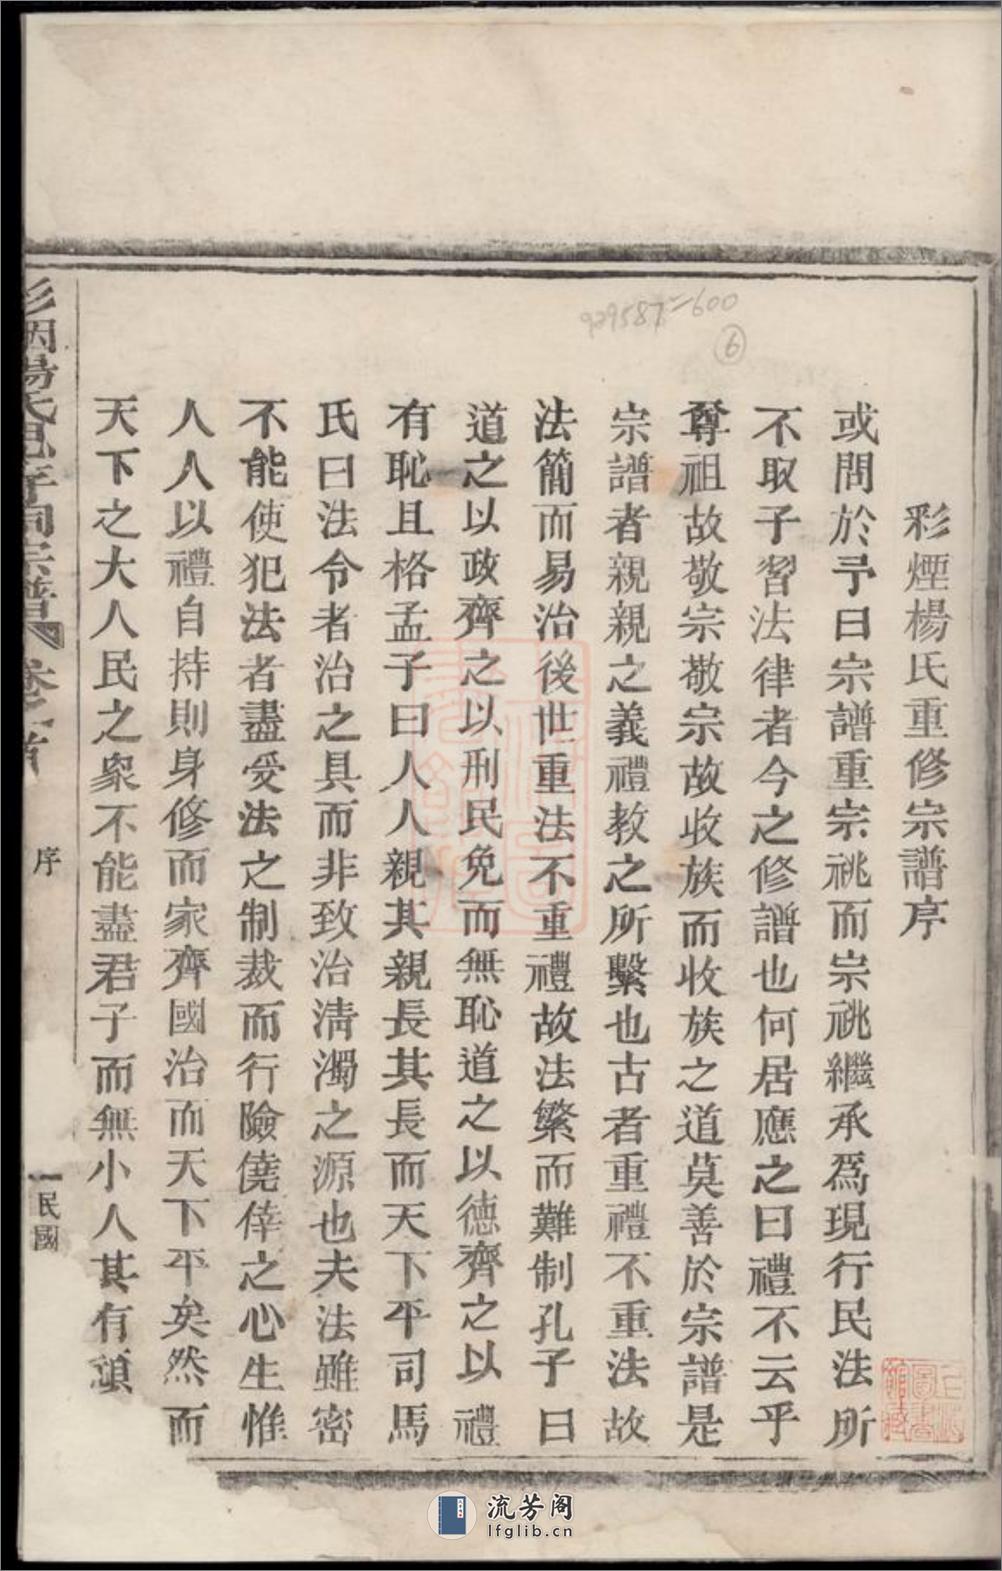 彩煙楊氏重修宗譜序
或問於予曰宗譜重宗祧而宗祧繼承爲現行民法所
不取子習法律者今之修譜也何居應之曰禮不云乎
尊祖故敬宗敬宗故收族而收族之道莫善於宗譜是
宗譜者親親之義禮教之所繫也古者重禮不重法故
法簡而易治後世重法不重禮故法繁而難制孔子曰
道之以政齊之以刑民免而無恥道之以德齊之以禮
有恥且格孟子曰人人親其親長其長而天下平司馬
氏曰法令者治之具而非致治清濁之源也夫法雖密
不能使犯法者盡受法之制裁而行險僥倖之心生惟
人人以禮自持則身修而家齊國治而天下平矣然而
天下之大人民之衆不能盡君子而無小人其有頑
宗譜 卷之首
序
一
民國
929587=600
6
上海圖書館藏
流芳阁
lfglib.cn